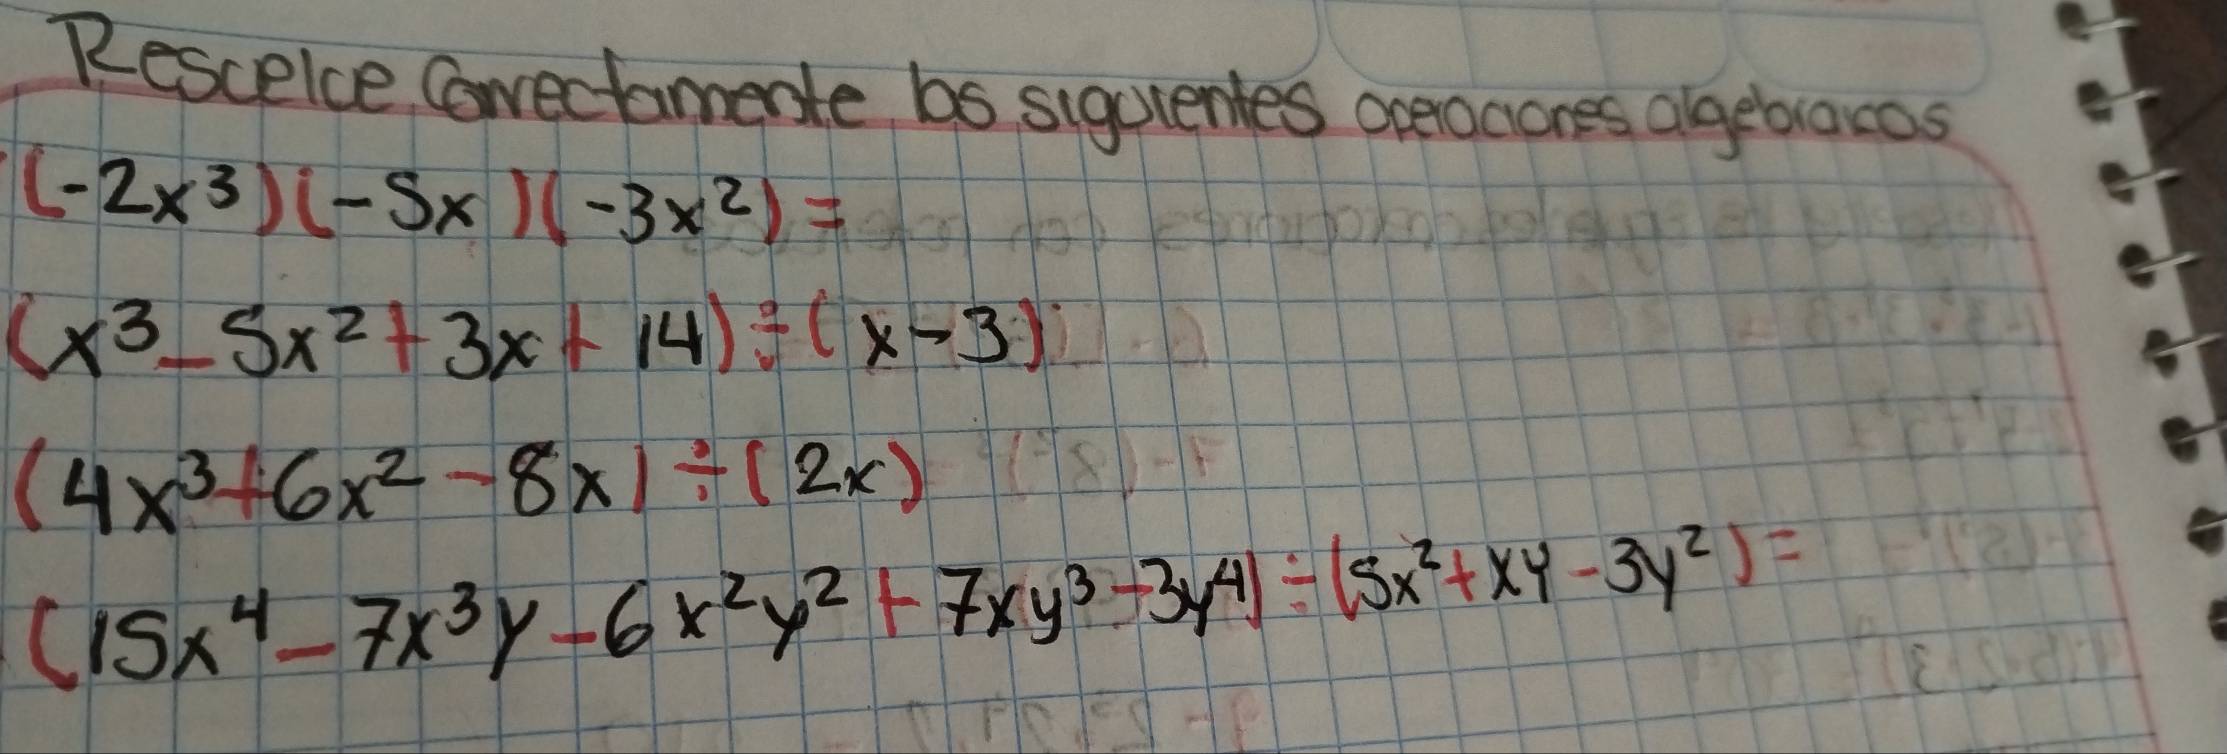 Rescelce Correctamente los siguientes operaciones algebraicas
(-2x³)(-5x)(-3x²)=
(x³-5x²+3x+14)÷(x-3)
(4x³+6x²-8x)÷(2x)
(15x⁴-7x³y-6x²y²+7xy³-3y⁴)÷(5x²+xy-3y²)=